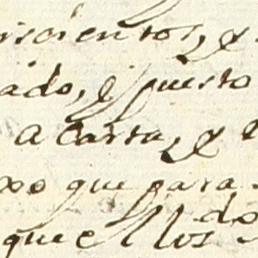 iscientos, y
ado, y puesto
a Carta, y e
xo que para
do
que ellos